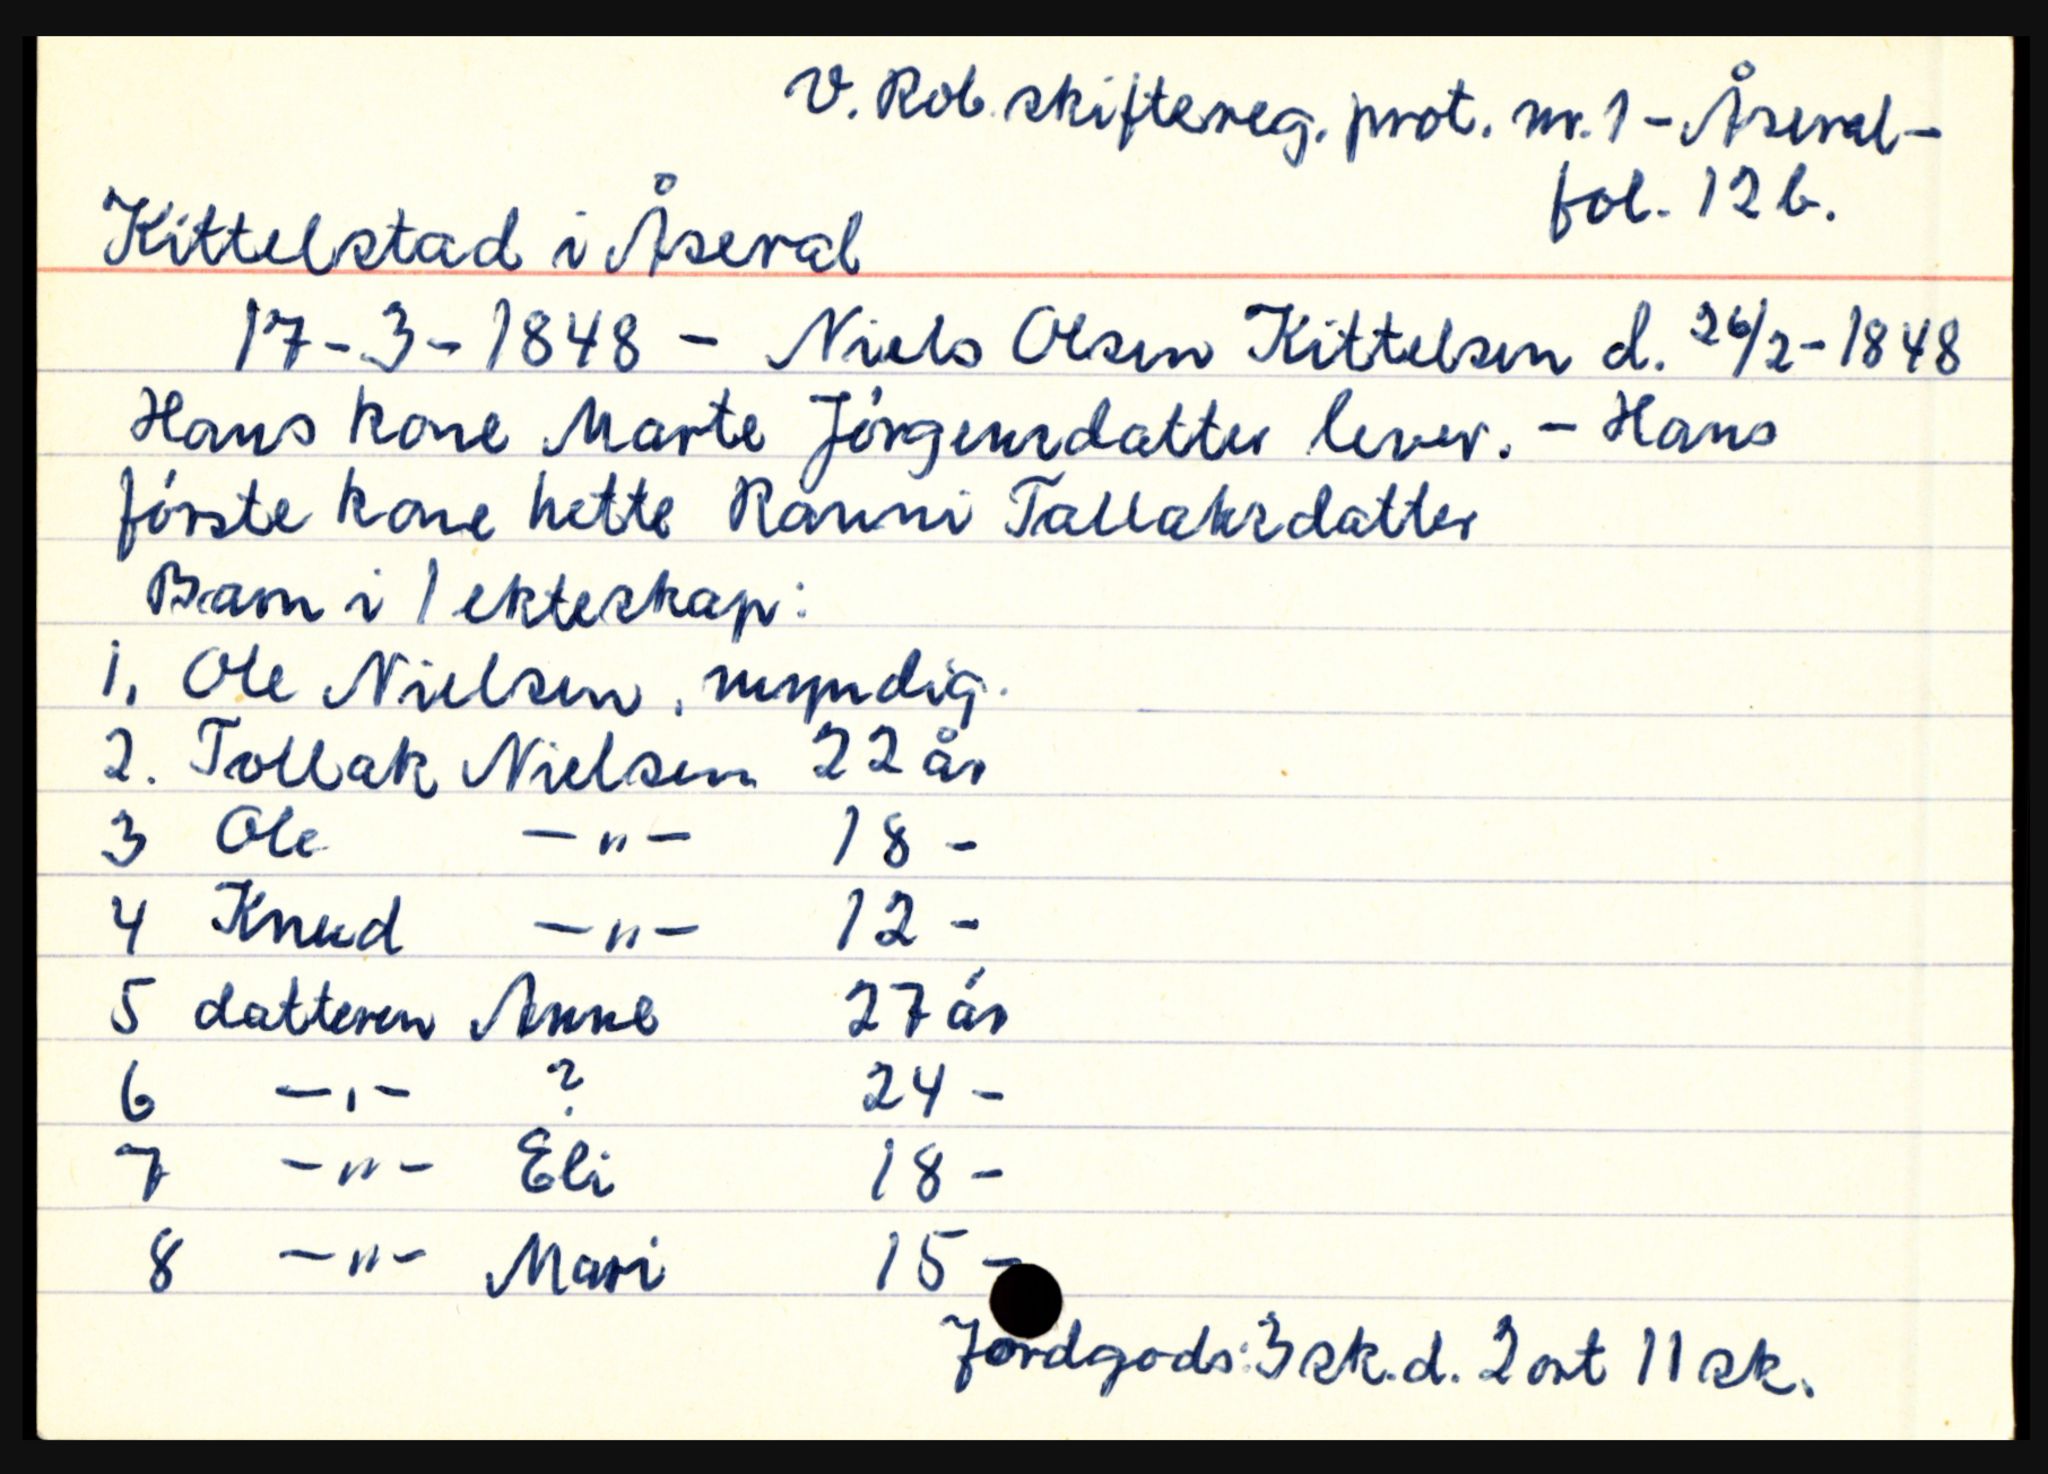 V. Rob. skiftereg. prot. nr. 1 - Åseral -
fol. 12 b.
Kittelstad i Åseral
17-3-1848 - Niels Olsen Kittelsen d. 26/2-1848
Hans kone Marte Jørgensdatter lever. - Hans
første kone hette Ranni Tallaksdatter
Barn i 1 ekteskap:
1. Ole Nielsen, myndig.
2. Tollak Nielsen 22 år
3 Ole -"- 18 -
4 Knud -"- 12 -
5 datteren Anne 27 år
6 -"- ? 24 -
7 -"- Eli 18 -
8 -"- Mari 15 -
Jordgods: 3 sk.d. 2 ort 11 sk.